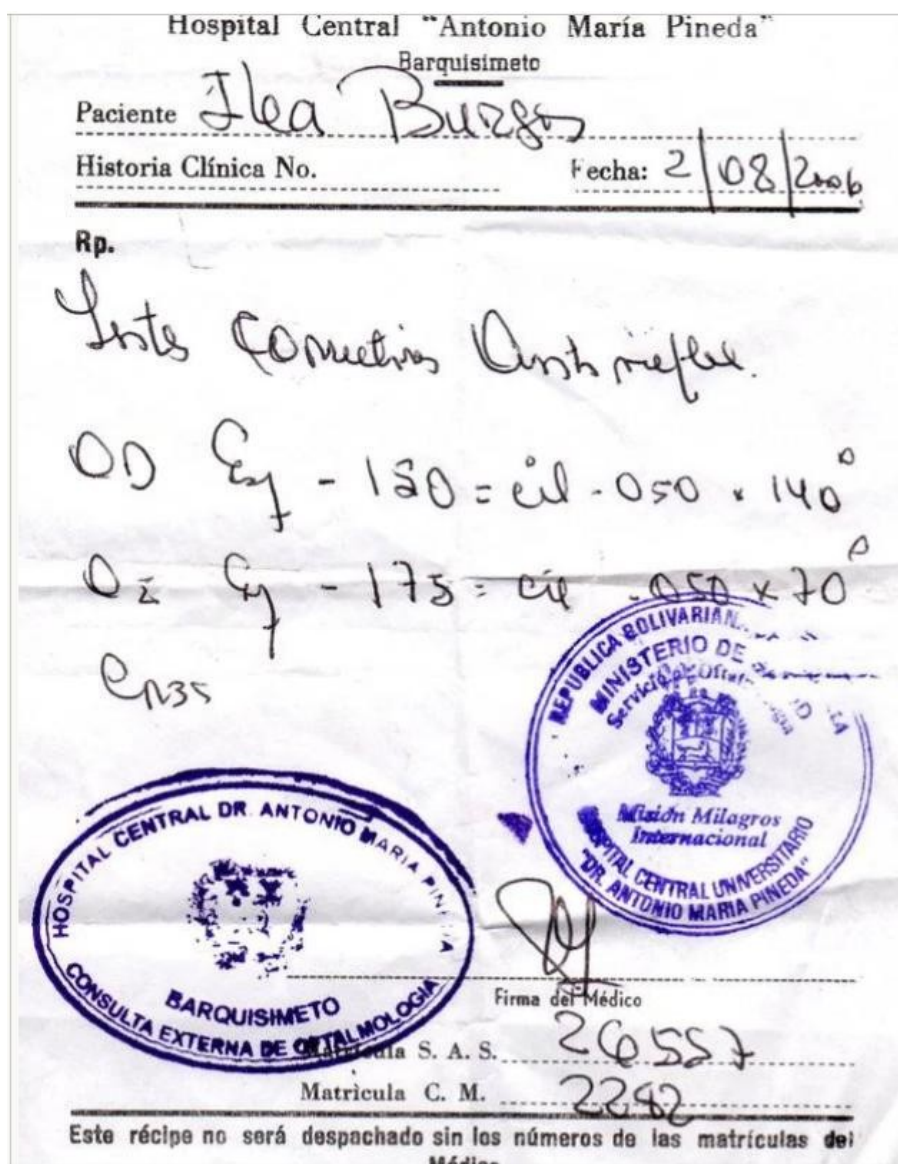 Hospital Central "Antonio María Pineda"
Barquisimeto
Paciente Ilea Burgos
Historia Clínica No. Fecha: 2/08/2006
Rp.
Lentes Correctivos Antireflex.
OD Esf - 150 = cil - 050 x 140°
OI Esf - 175 = cil - 050 x 70°
REPUBLICA BOLIVARIAN
MINISTERIO DE
Servicio de Oftalmología
Misión Milagros
Internacional
HOSPITAL CENTRAL UNIVERSITARIO
"DR. ANTONIO MARIA PINEDA"
HOSPITAL CENTRAL DR. ANTONIO MARIA PINEDA
BARQUISIMETO
CONSULTA EXTERNA DE OFTALMOLOGIA
Firma del Médico
Matrícula S. A. S. 26557
Matrícula C. M. 2242
Este récipe no será despachado sin los números de las matrículas del
Médico